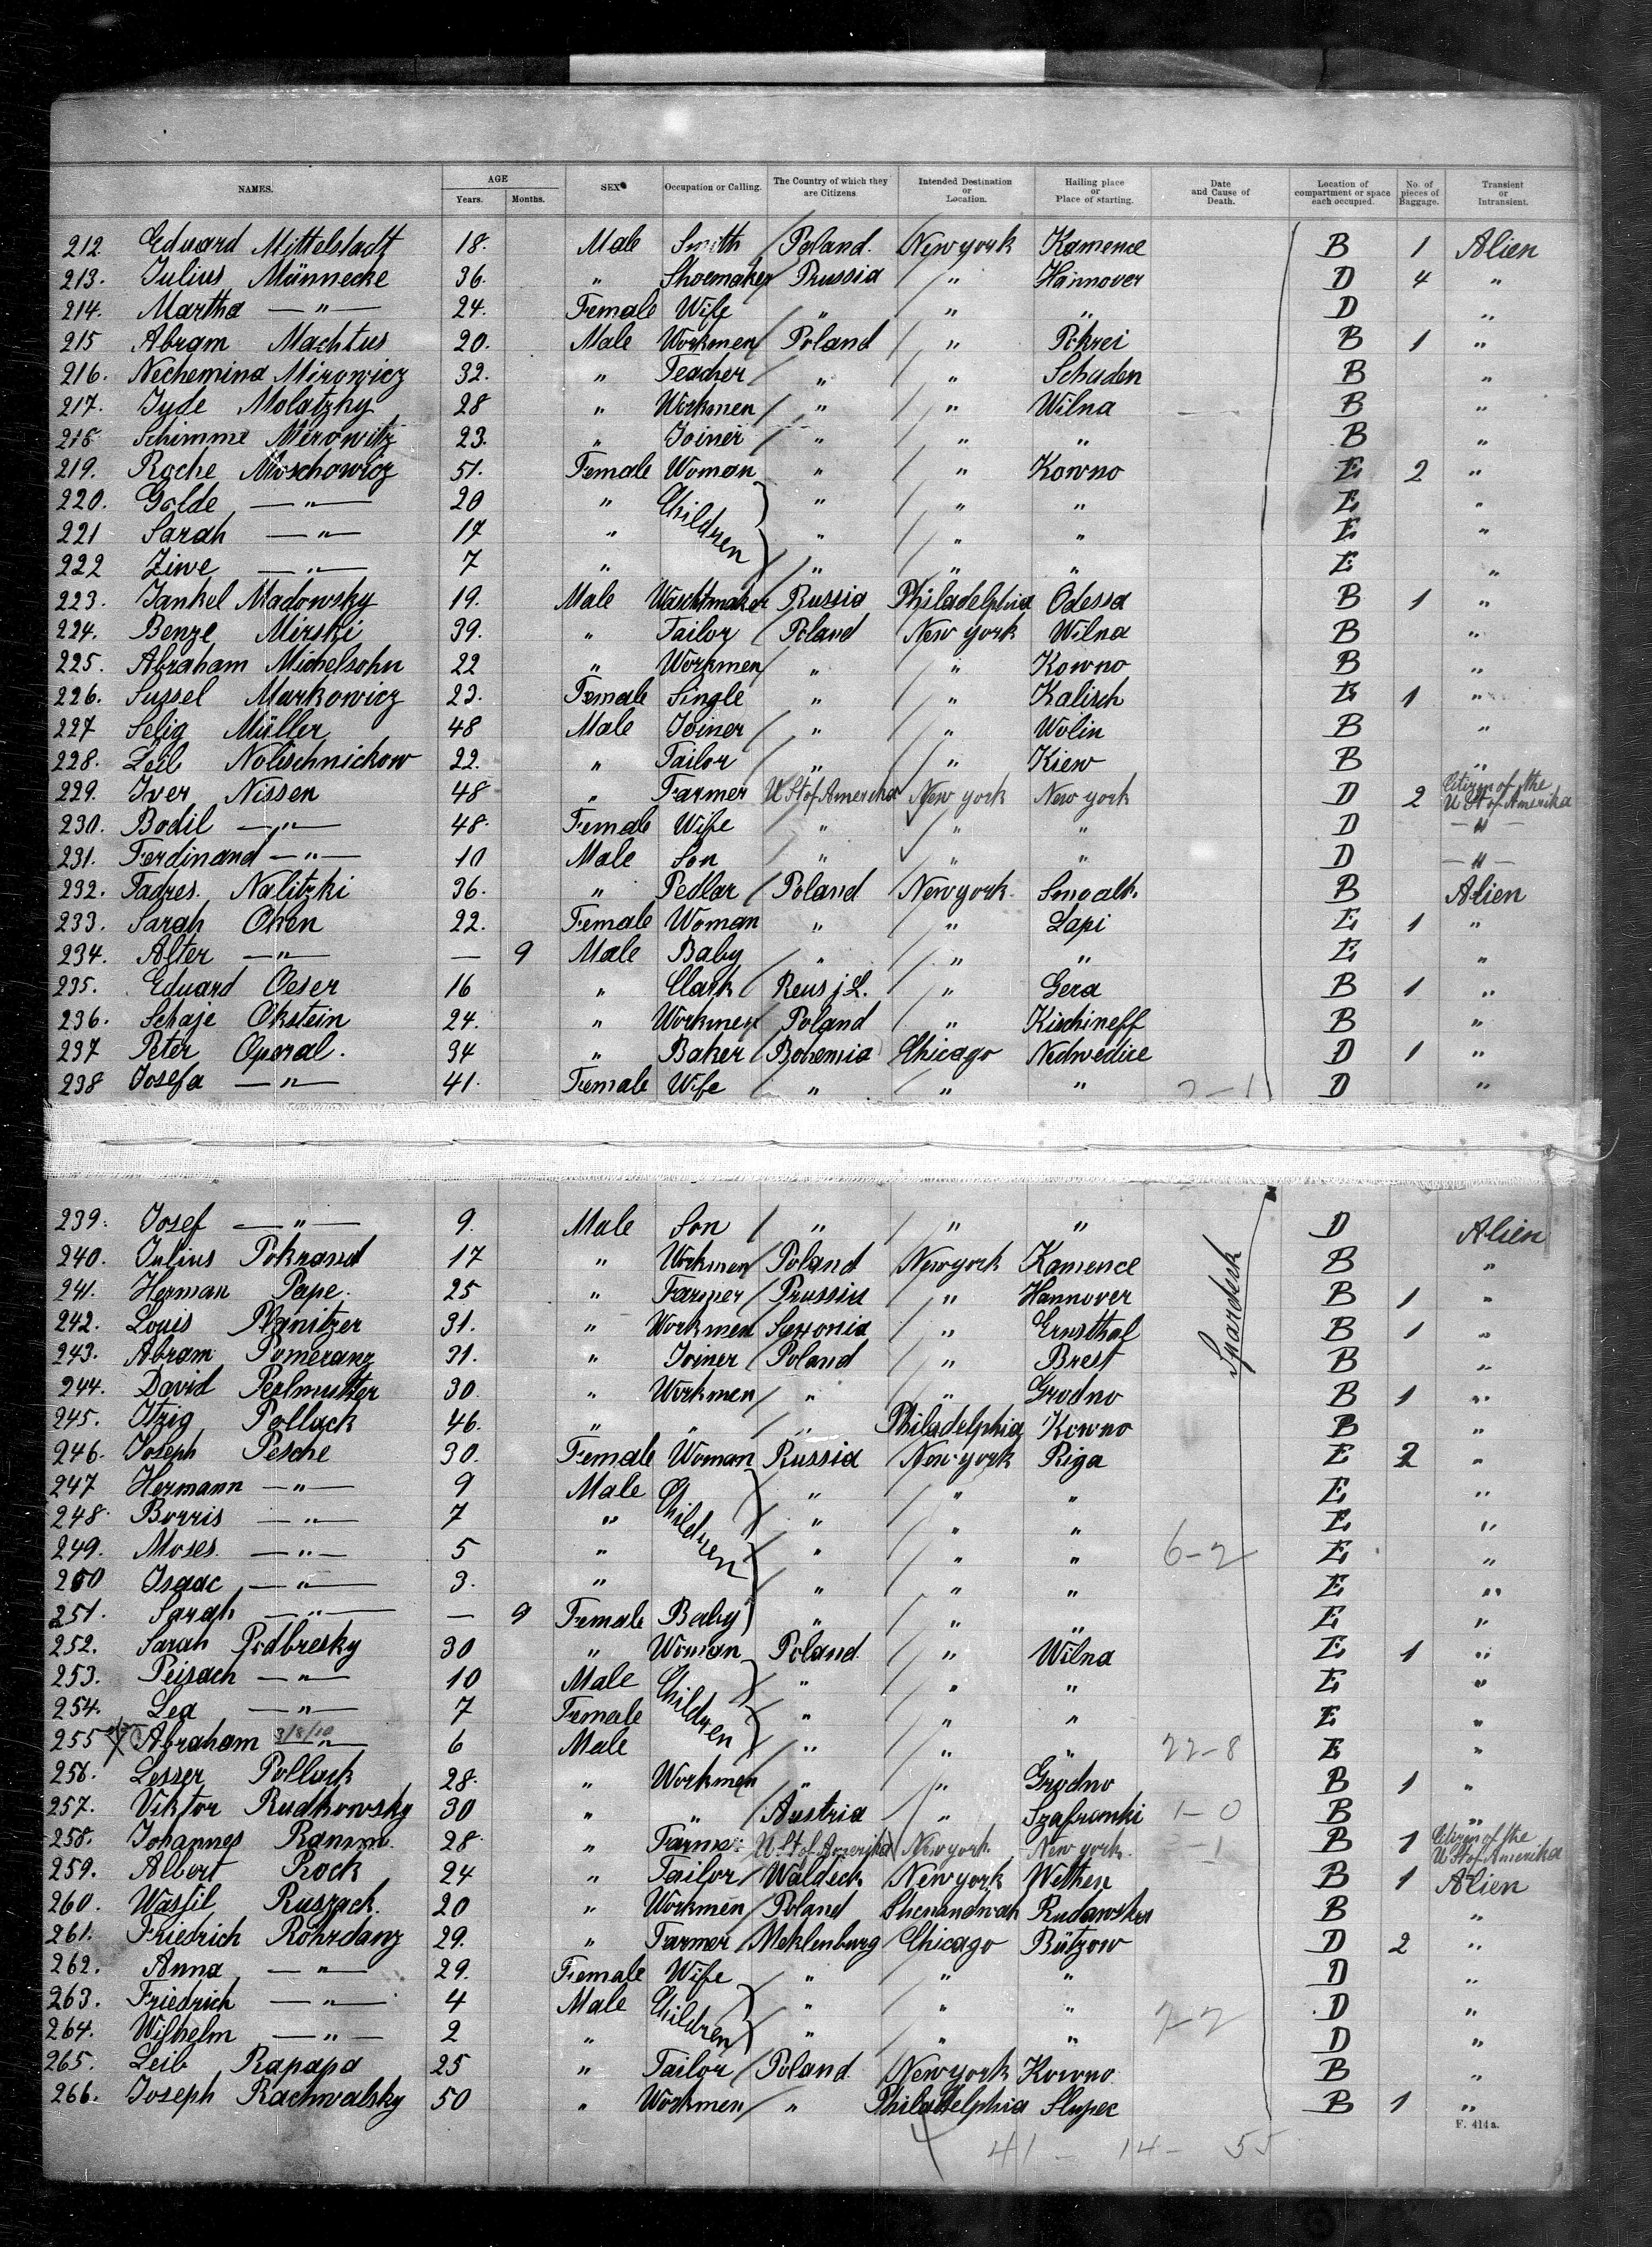 NAMES. AGE Years. Months. SEX Occupation or Calling. The Country of which they are Citizens. Intended Destination or Location. Hailing place or Place of starting. Date and Cause of Death. Location of compartment or space each occupied. No. of pieces of Baggage. Transient or Intransient.
212. Eduard Mittelstadt 18. Male Smith Poland. New york Kamence B 1 Alien
213. Julius Männecke 36. " Shoemaker Prussia " Hannover D 4 "
214. Martha —"— 24. Female Wife " " " D "
215 Abram Machtus 20. Male Workmen Poland " Pokrei B 1 "
216. Nechemina Mirowicz 32. " Teacher " " Schaden B "
217. Jude Molatzky 28 " Workmen " " Wilna B "
218. Schimme Merowitz 23. " Joiner " " " B "
219. Roche Moschowicz 51. Female Woman " " Kowno E 2 "
220. Golde —"— 20 " Children " " " E "
221 Sarah —"— 17 " " " " E "
222 Ziwe —"— 7 " " " " E "
223. Jankel Madowsky 19. Male Watchmaker Russia Philadelphia Odessa B 1 "
224. Benze Mirski 39. " Tailor Poland New york Wilna B "
225. Abraham Michelsohn 22 " Workmen " " Kowno B "
226. Sussel Markowicz 23. Female Single " " Kalisch E 1 "
227 Selig Müller 48 Male Joiner " " Wolin B "
228. Leib Nolischnickow 22. " Tailor " " Kiew B "
229. Iver Nissen 48 " Farmer U St of Amerika New york New york D 2 Citizen of the U St of Amerika
230. Bodil —"— 48. Female Wife " " " D —"—
231. Ferdinand —"— 10 Male Son " " " D —"—
232. Tadres. Nalitzki 36. " Pedlar Poland New york. B Alien
233. Sarah Oken 22. Female Woman " " Lapi E 1 "
234. Alter —"— — 9 Male Baby " " " E "
235. Eduard Oeser 16 " Clark Reus j L. " Gera B 1 "
236. Schaje Okstein 24. " Workmen Poland " Kischineff B "
237 Peter Oparal. 34 " Baker Bohemia Chicago Nedwedice D 1 "
238 Josefa —"— 41. Female Wife " " " D "
239. Josef —"— 9. Male Son " " " D Alien
240. Julius Pokrand 17 " Workmen Poland New york Kamence B "
241. Herman Pape. 25 " Farmer Prussia " Hannover B 1 "
242. Louis Planitzer 31. " Workmen Saxonia " Ernsthal B 1 "
243. Abram Pomeranz 31. " Joiner Poland " Brest Spardeck B "
244. David Perlmutter 30. " Workmen " " Grodno B 1 "
245. Itzig Pollack 46. " " " Philadelphia Kowno B "
246. Joseph Pesche 30. Female Woman Russia New york Riga E 2 "
247 Hermann —"— 9 Male Children " " " E "
248. Borris —"— 7 " " " " E "
249. Moses. —"— 5 " " " " 6-2 E "
250 Isaac —"— 3. " " " " E "
251. Sarah —"— — 9 Female Baby " " " E "
252. Sarah Podbresky 30 " Woman Poland. " Wilna E 1 "
253. Peisach —"— 10 Male Children " " " E "
254. Lea —"— 7 Female " " " E "
255 X Abraham 3/8/10 —"— 6 Male " " " 22-8 E "
256. Lesser Pollack 28. " Workmen " " Grodno B 1 "
257. Viktor Rudkowsky 30 " " Austria " Szafranki 1-0 B "
258. Johannes Ramm. 28 " Farmer U St of Amerika New york. New york. B 1 Citizen of the U St of Amerika
259. Albert Rock 24 " Tailor Waldeck New york Wethen B 1 Alien
260. Wassil Ruszack. 20 " Workmen Poland Shenandwah B "
261. Friedrich Rohrdanz 29. " Farmer Meklenburg Chicago Bützow D 2 "
262. Anna —"— 29. Female Wife " " " D "
263. Friedrich —"— 4 Male Children " " " 7-2 D "
264. Wilhelm —"— 2 " " " " D "
265. Leib Rapapa 25 " Tailor Poland. New york Kowno B "
266. Joseph Rachwalsky 50 " Workmen " Philadelphia Slupec B 1 "
F. 414a.
41 - 14 - 55